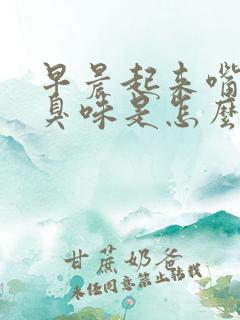 早晨起来嘴
臭味是怎么
甘蔗奶爸
未经同意禁止转载